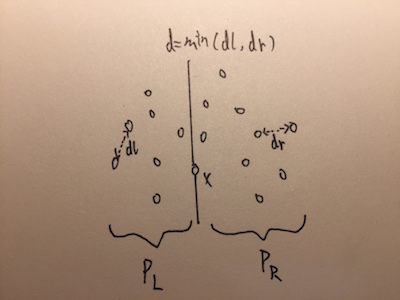 d=min(dl,dr)
dl
dr
x
PL
PR